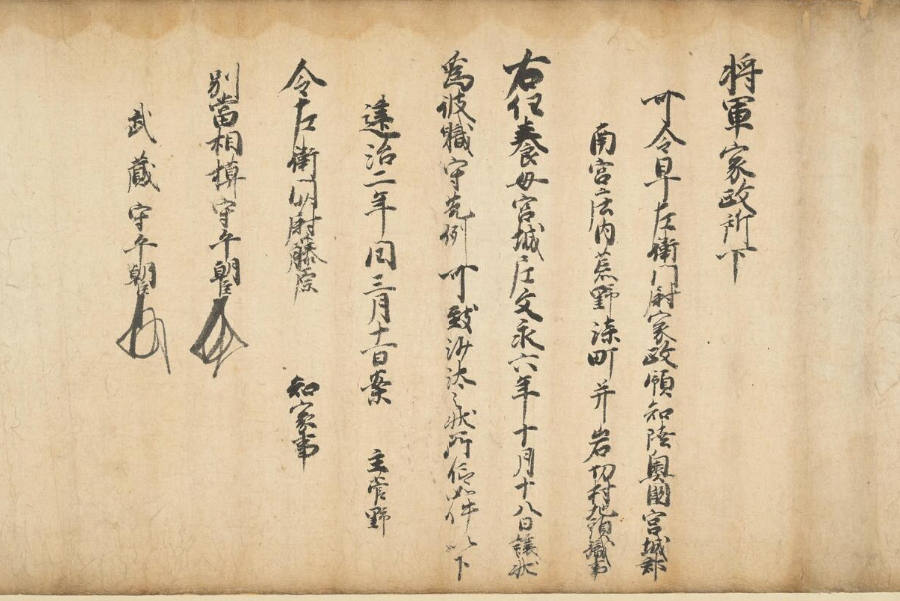 将軍家政所下
可令早左衛門尉家政領知陸奥国宮城郡
南宮庄内荒野漆町并岩切村地頭職事
右任養母宮城尼文永六年十月十八日譲状
為彼職守先例可致沙汰之状所仰如件以下
建治二年閏三月十一日案主菅野
令左衛門尉藤原 知家事
別當相模守平朝臣
武蔵守平朝臣